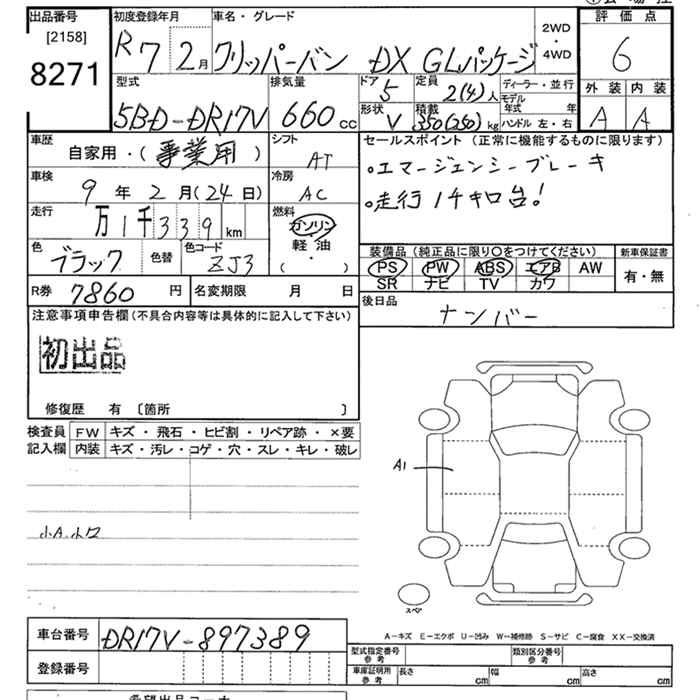 出品番号 [2158] 8271
初度登録年月 R7年2月
車名・グレード クリッパーバン DX GLパッケージ
2WD
・4WD
評価点 6
型式 5BD-DR17V
排気量 660 cc
ドア 5
定員 2(4)人
ディーラー・並行
形状 V
積載 350(250)kg
モデル年式 年
ハンドル 左・右
外装 A
内装 A
車歴 自家用・(事業用)
シフト AT
車検 9年2月(24日)
冷房 AC
走行 万1千339km
燃料 ガソリン
軽油
( ・ )
色 ブラック
色替
色コード ZJ3
R券 7860円
名変期限 月 日
セールスポイント (正常に機能するものに限ります)
・エマージェンシーブレーキ
・走行1千キロ台!
装備品(純正品に限り〇をつけてください)
新車保証書
PS PW ABS エアB AW
SR ナビ TV カワ
有・無
後日品 ナンバー
注意事項申告欄(不具合内容等は具体的に記入して下さい)
初出品
修復歴 有 〔箇所 〕
検査員 FW キズ・飛石・ヒビ割・リペア跡・×要
記入欄 内装 キズ・汚レ・コゲ・穴・スレ・キレ・破レ
小A.小ワ
A1
スペア
A-キズ E-エクボ U-凹み W-補修跡 S-サビ C-腐食 XX-交換済
車台番号 DR17V-897389
登録番号
型式指定番号
参考
類別区分番号
参考
車庫証明用
参考
長さ cm
幅 cm
高さ cm